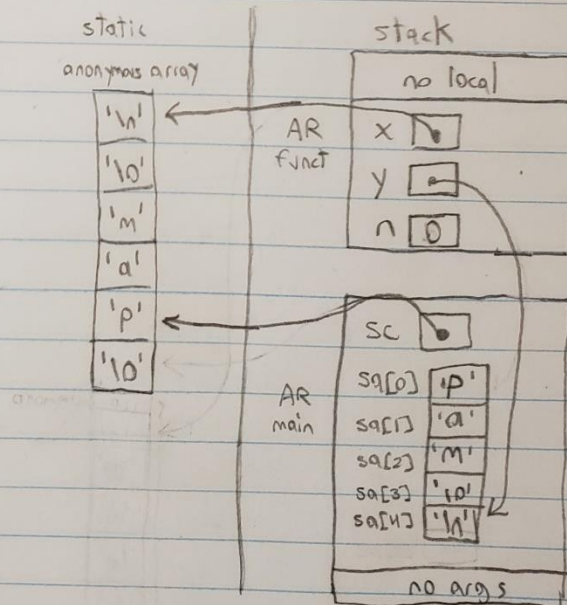 static
anonymous array
'\n'
'\0'
'm'
'a'
'p'
'\0'
stack
no local
AR
funct
x
y
n 0
AR
main
sc
sa[0] 'p'
sa[1] 'a'
sa[2] 'm'
sa[3] '\0'
sa[4] '\n'
no args